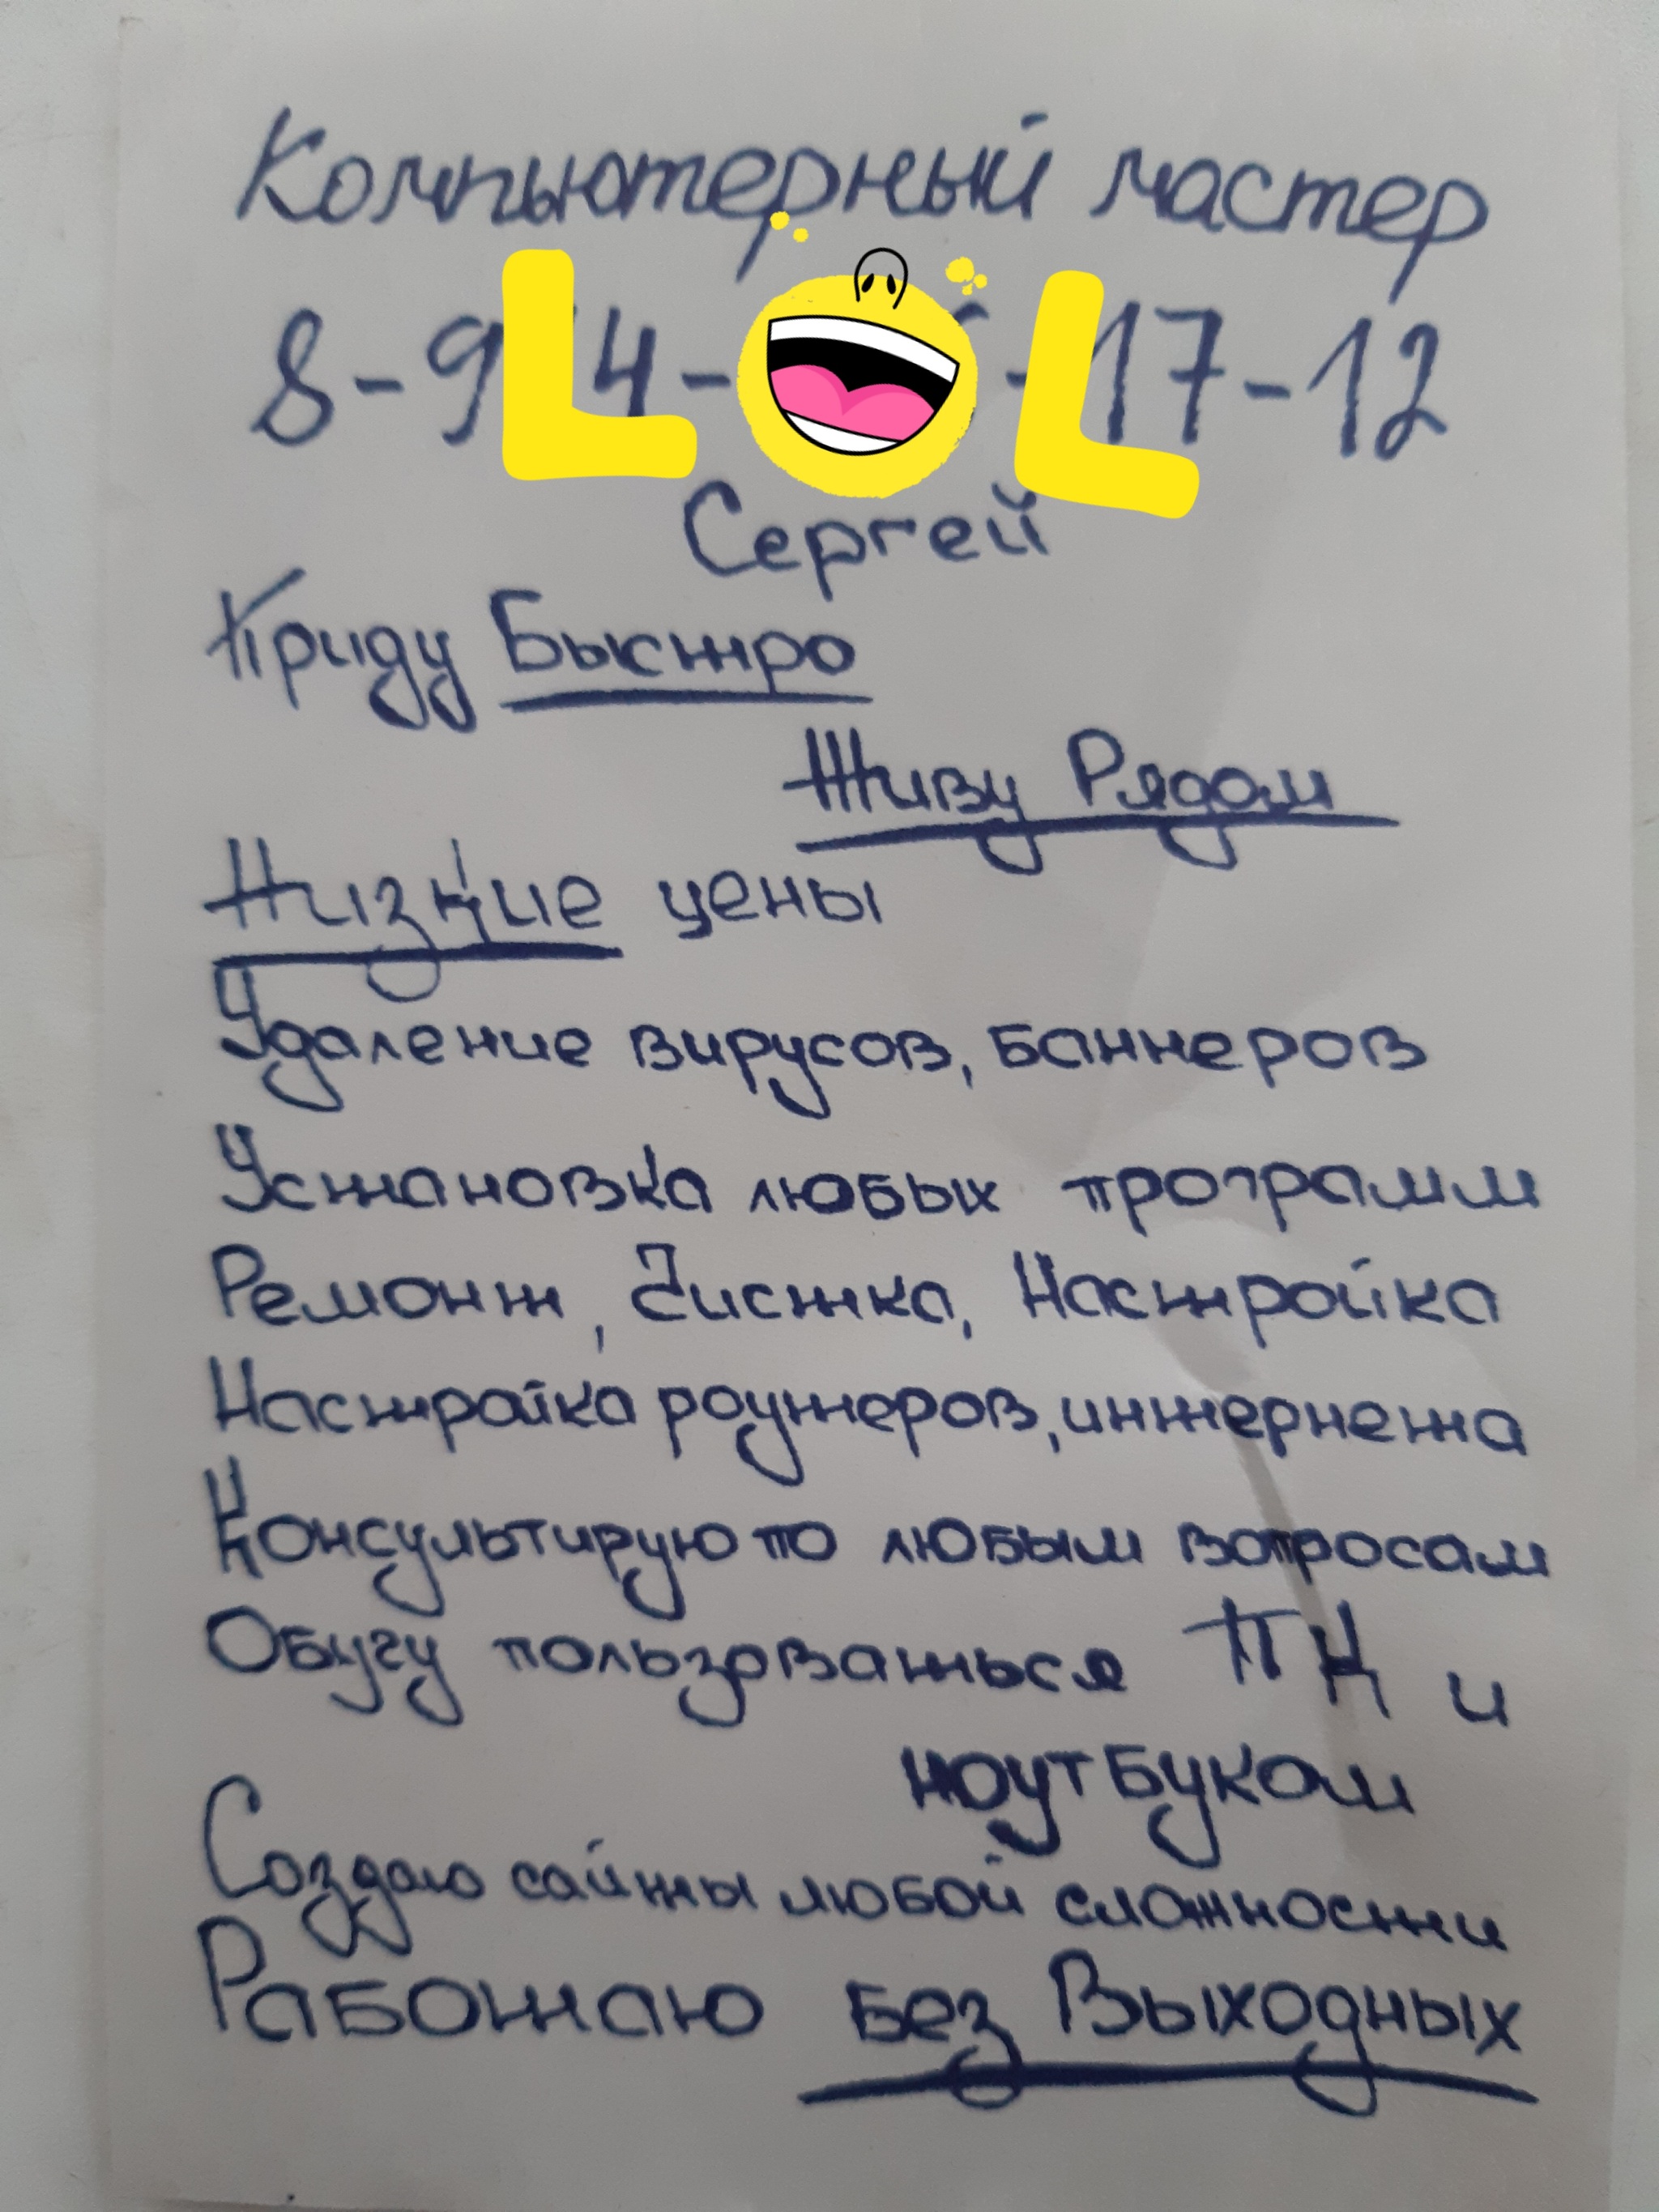 Компьютерный мастер
8-9 4- -17-12
LOL
Сергей
Приду Быстро
Живу Рядом
Низкие цены
Удаление вирусов, баннеров
Установка любых программ
Ремонт, Чистка, Настройка
Настройка роутеров, интернета
Консультирую по любым вопросам
Обучу пользоваться ПК и
ноутбуком
Создаю сайты любой сложности
Работаю без Выходных